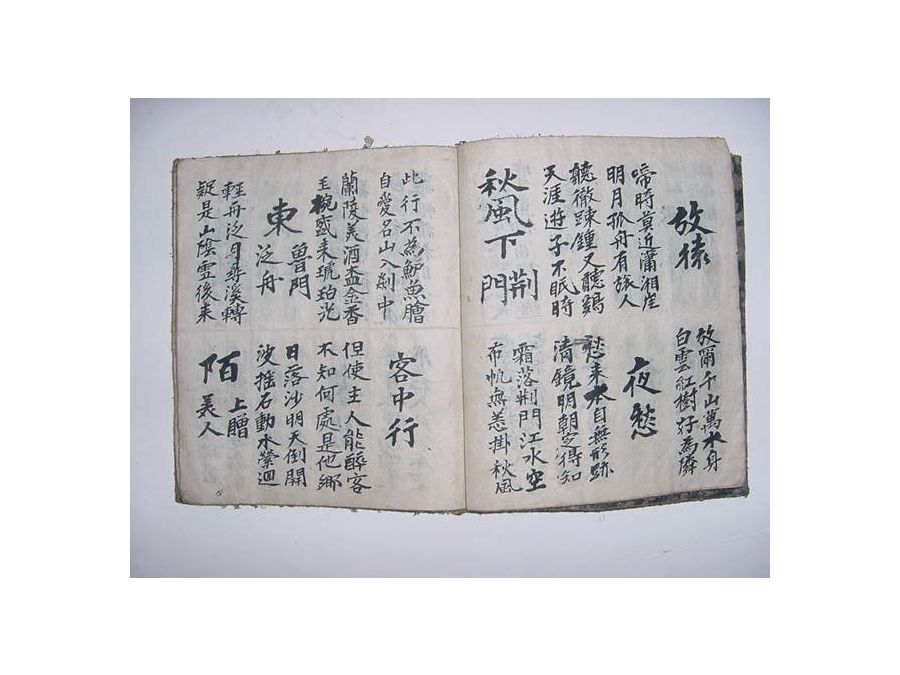 放猿
放爾千山萬水身
白雲紅樹好為隣
啼時莫近瀟湘岸
明月孤舟有旅人
夜愁
聽徹踈鍾又聽鷄
天涯遊子不眠時
愁来本自無形跡
清鏡明朝定得知
秋風下荆門
霜落荆門江水空
布帆無恙掛秋風
此行不為鱸魚膾
自愛名山入剡中
客中行
蘭陵美酒盃金香
玉椀盛来琥珀光
但使主人能醉客
不知何處是他鄉
東魯門泛舟
日落沙明天倒開
波摇石動水縈迴
輕舟泛月尋溪轉
疑是山陰雪後来
陌上贈美人